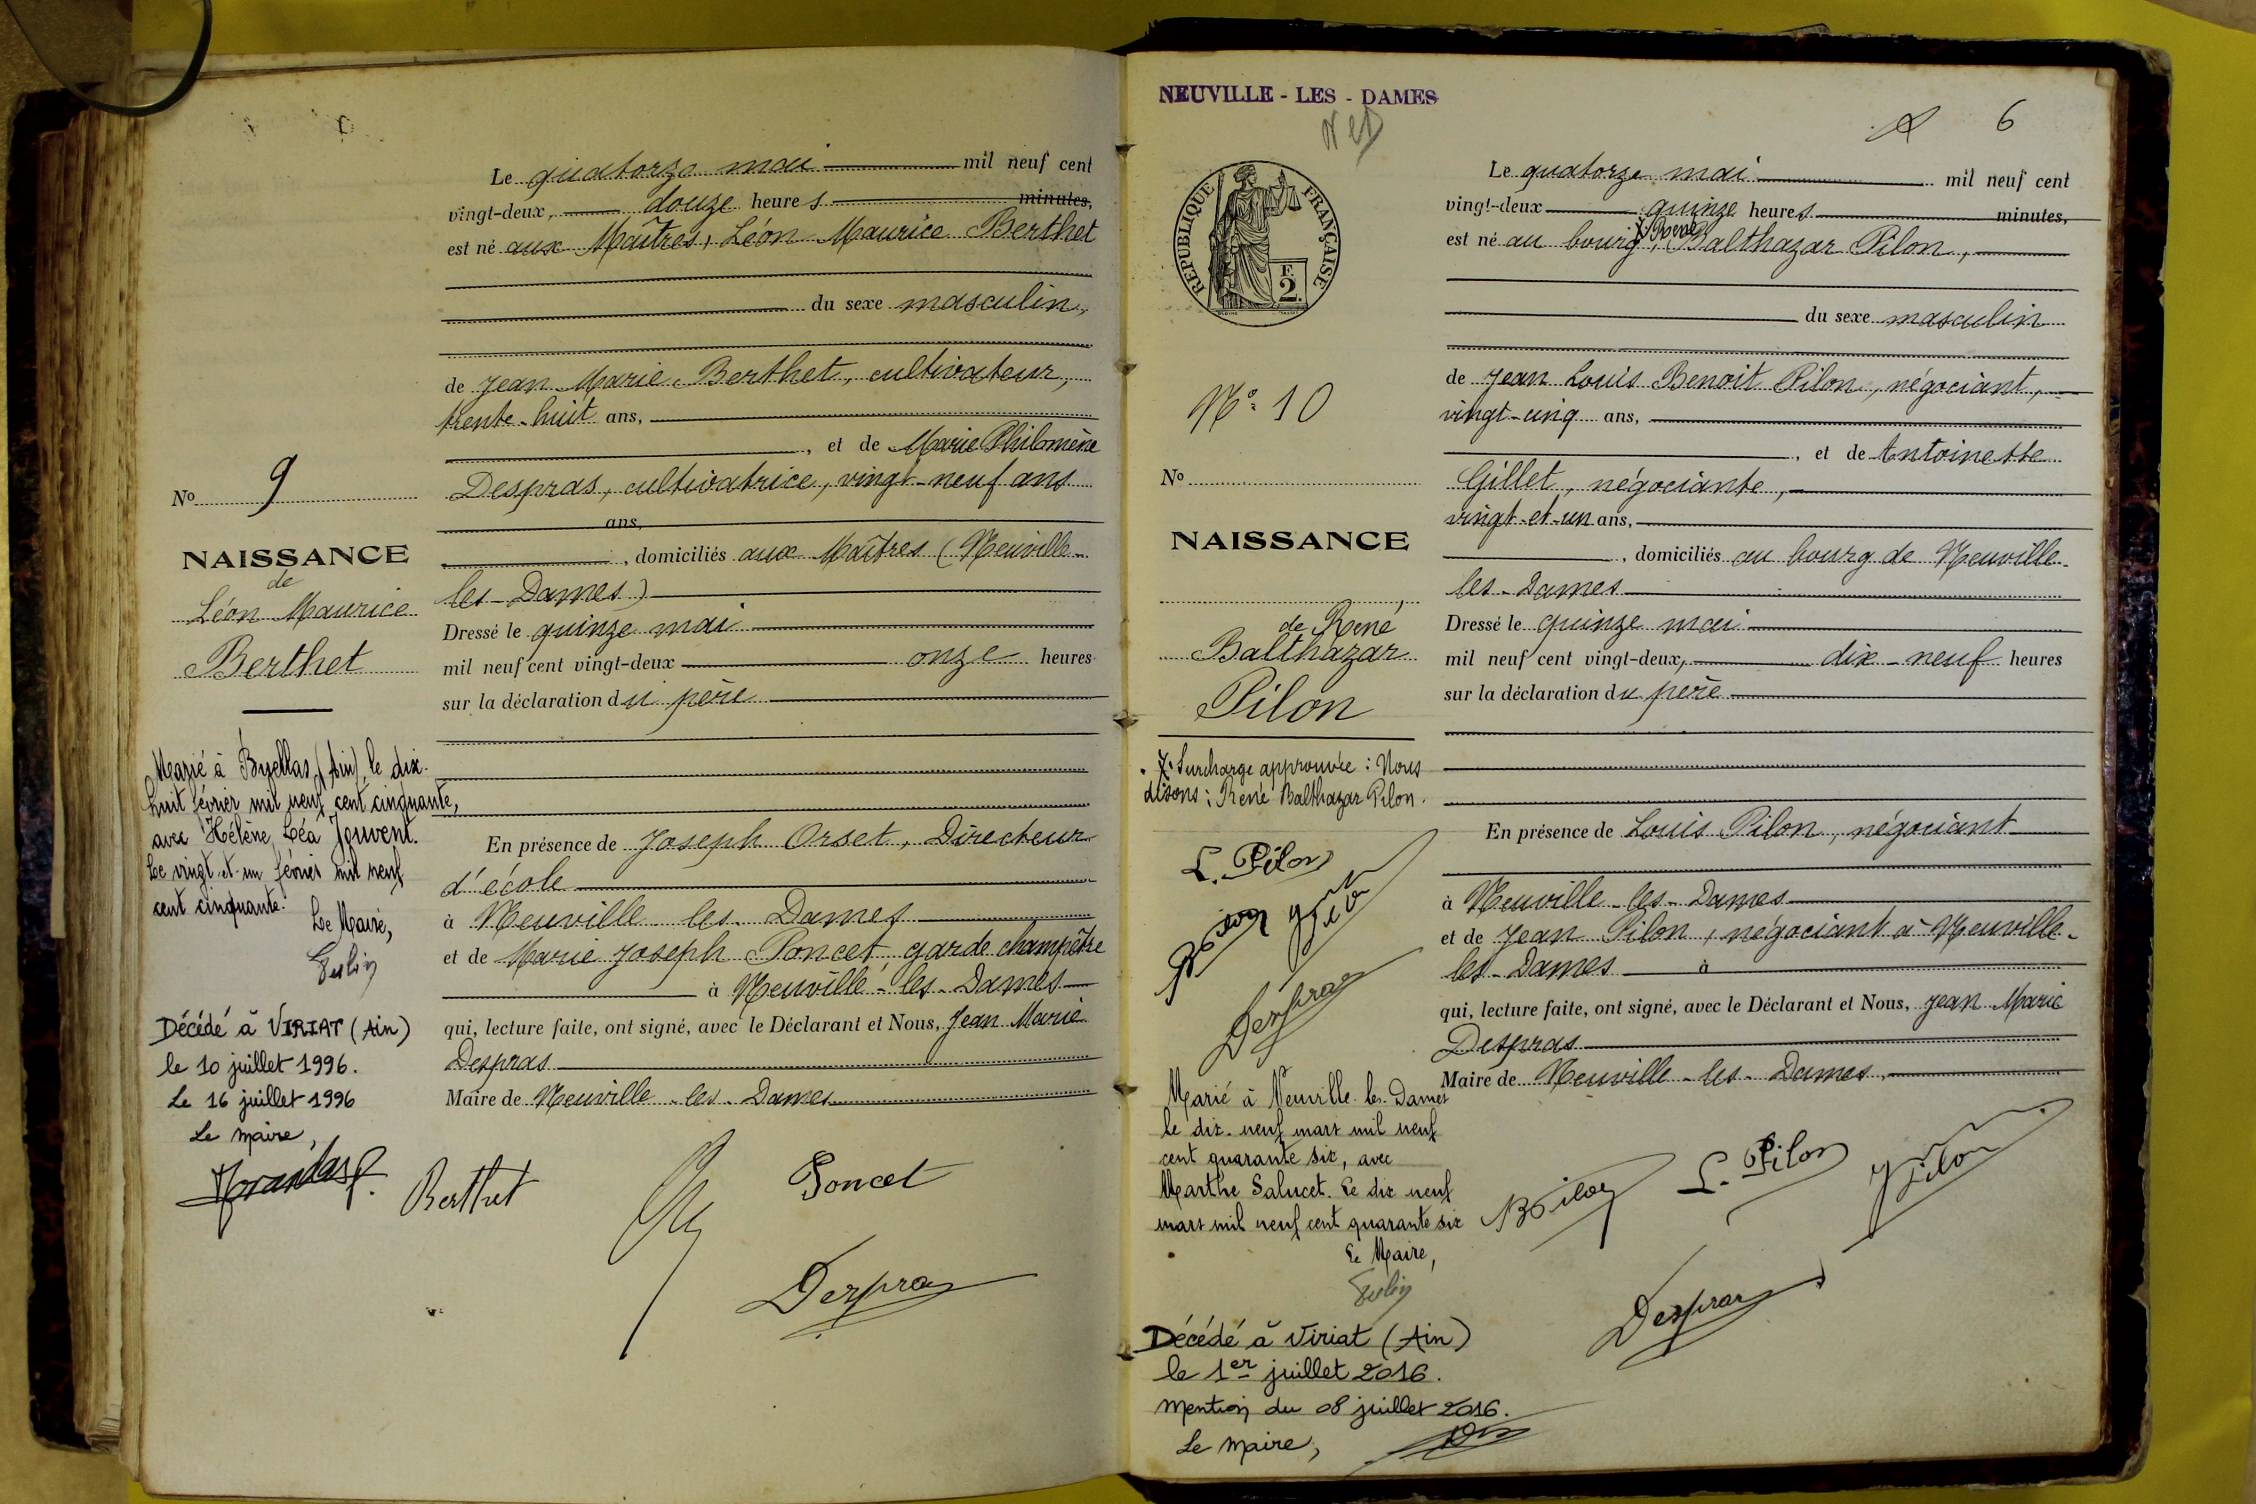 Le quatorze mai mil neuf cent
vingt-deux, douze heures minutes,
est né aux Maîtres, Léon Maurice Berthet
du sexe masculin,
de Jean Marie Berthet, cultivateur,
trente-huit ans,
, et de Marie Philomène
Despras, cultivatrice, vingt-neuf ans
ans,
, domiciliés aux Maîtres (Neuville-
les-Dames)
Dressé le quinze mai
mil neuf cent vingt-deux onze heures
sur la déclaration du père
En présence de Joseph Orset, Directeur
d'école
à Neuville-les-Dames
et de Marie Joseph Poncet, garde champêtre
à Neuville-les-Dames
qui, lecture faite, ont signé, avec le Déclarant et Nous, Jean Marie
Despras
Maire de Neuville-les-Dames
Berthet
Poncet
Despras
No 9
NAISSANCE
de
Léon Maurice
Berthet
Marié à Byellas (Ain) le dix-
huit février mil neuf cent cinquante,
avec Hélène Léa Jouvent.
Le vingt-et-un février mil neuf
cent cinquante.
Le Maire,
Décédé à VIRIAT (Ain)
le 10 juillet 1996.
Le 16 juillet 1996
Le Maire,
NEUVILLE - LES - DAMES
6
REPUBLIQUE FRANÇAISE
F.
2.
Nº 10
No
NAISSANCE
de René
Balthazar
Pilon
Surcharge approuvée : Nous
disons : René Balthazar Pilon.
L. Pilon
B Pilon
J Pilon
Despras
Marié à Neuville-les-Dames
le dix-neuf mars mil neuf
cent quarante six, avec
Marthe Salucet. Le dix neuf
mars mil neuf cent quarante six
Le Maire,
Décédé à Viriat (Ain)
le 1er juillet 2016.
Mention du 08 juillet 2016.
Le Maire,
Le quatorze mai mil neuf cent
vingt-deux quinze heures minutes,
René
est né au bourg, Balthazar Pilon,
du sexe masculin
de Jean Louis Benoit Pilon, négociant,
vingt-cinq ans,
, et de Antoinette
Gillet, négociante,
vingt-et-un ans,
, domiciliés au bourg de Neuville-
les-Dames
Dressé le quinze mai
mil neuf cent vingt-deux, dix-neuf heures
sur la déclaration du père
En présence de Louis Pilon, négociant
à Neuville-les-Dames
et de Jean Pilon, négociant à Neuville-
les-Dames à
qui, lecture faite, ont signé, avec le Déclarant et Nous, Jean Marie
Despras
Maire de Neuville-les-Dames
B Pilon
L. Pilon
J Pilon
Despras